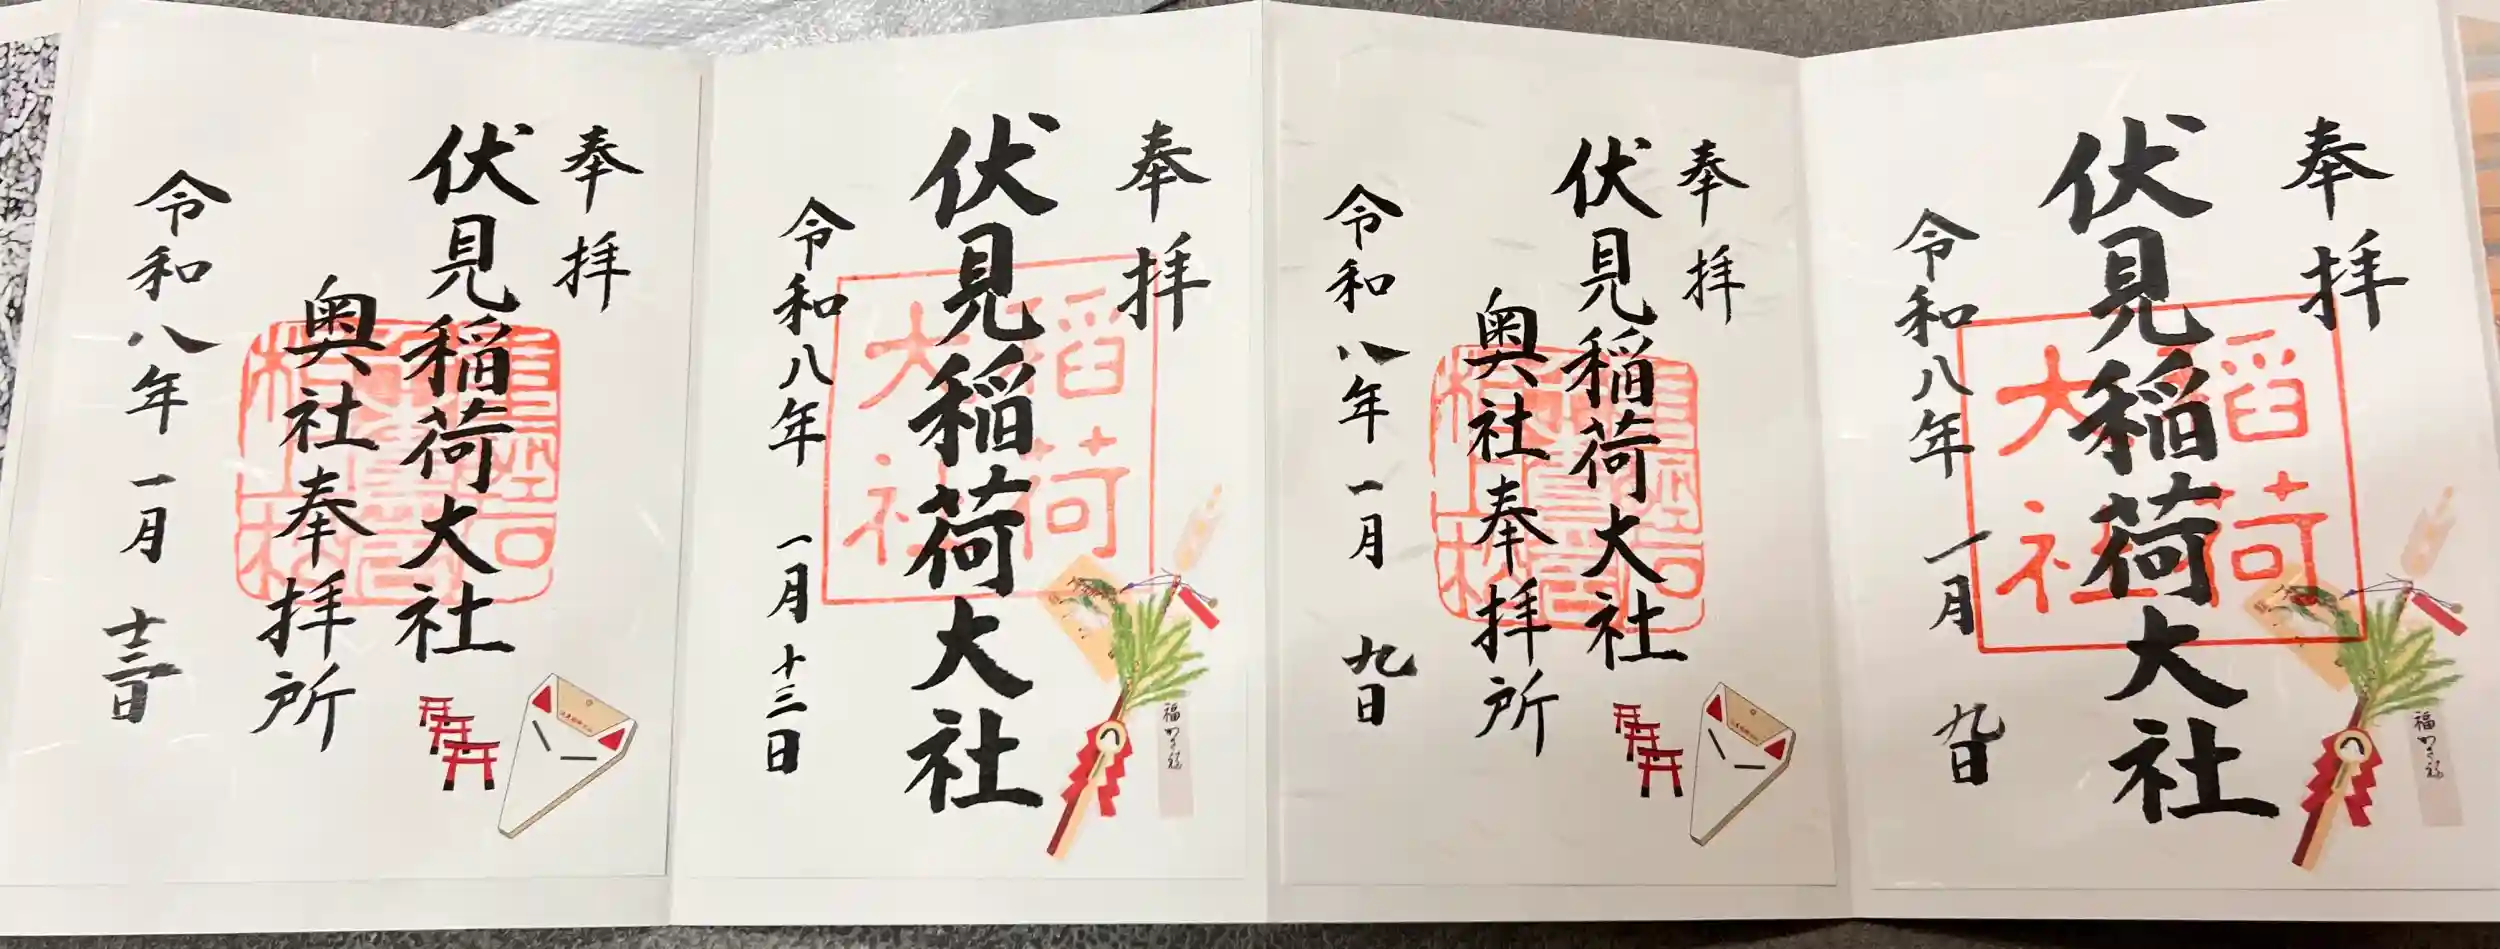 奉拝
伏見稲荷大社
稲荷大社
令和八年一月九日
奉拝
伏見稲荷大社
奥社奉拝所
令和八年一月九日
奉拝
伏見稲荷大社
稲荷大社
令和八年一月十三日
奉拝
伏見稲荷大社
奥社奉拝所
令和八年一月十三日